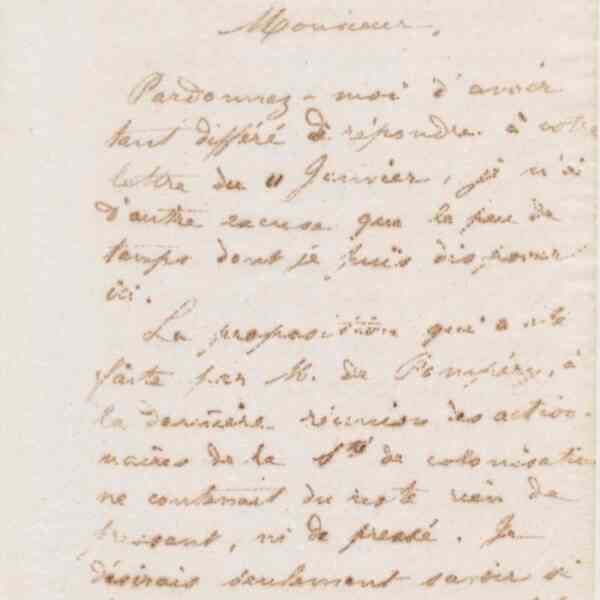 Monsieur,
Pardonnez-moi d'avoir
tant différé de répondre à votre
lettre du 11 Janvier, je n'ai
d'autre excuse que le peu de
temps dont je puis disposer
ici.
La proposition qui a été
faite par M. de Pompéry, à
la dernière réunion des action-
naires de la Sté de colonisation
ne contenait du reste rien de
pressant, ni de pressé. Je
désirais seulement savoir si